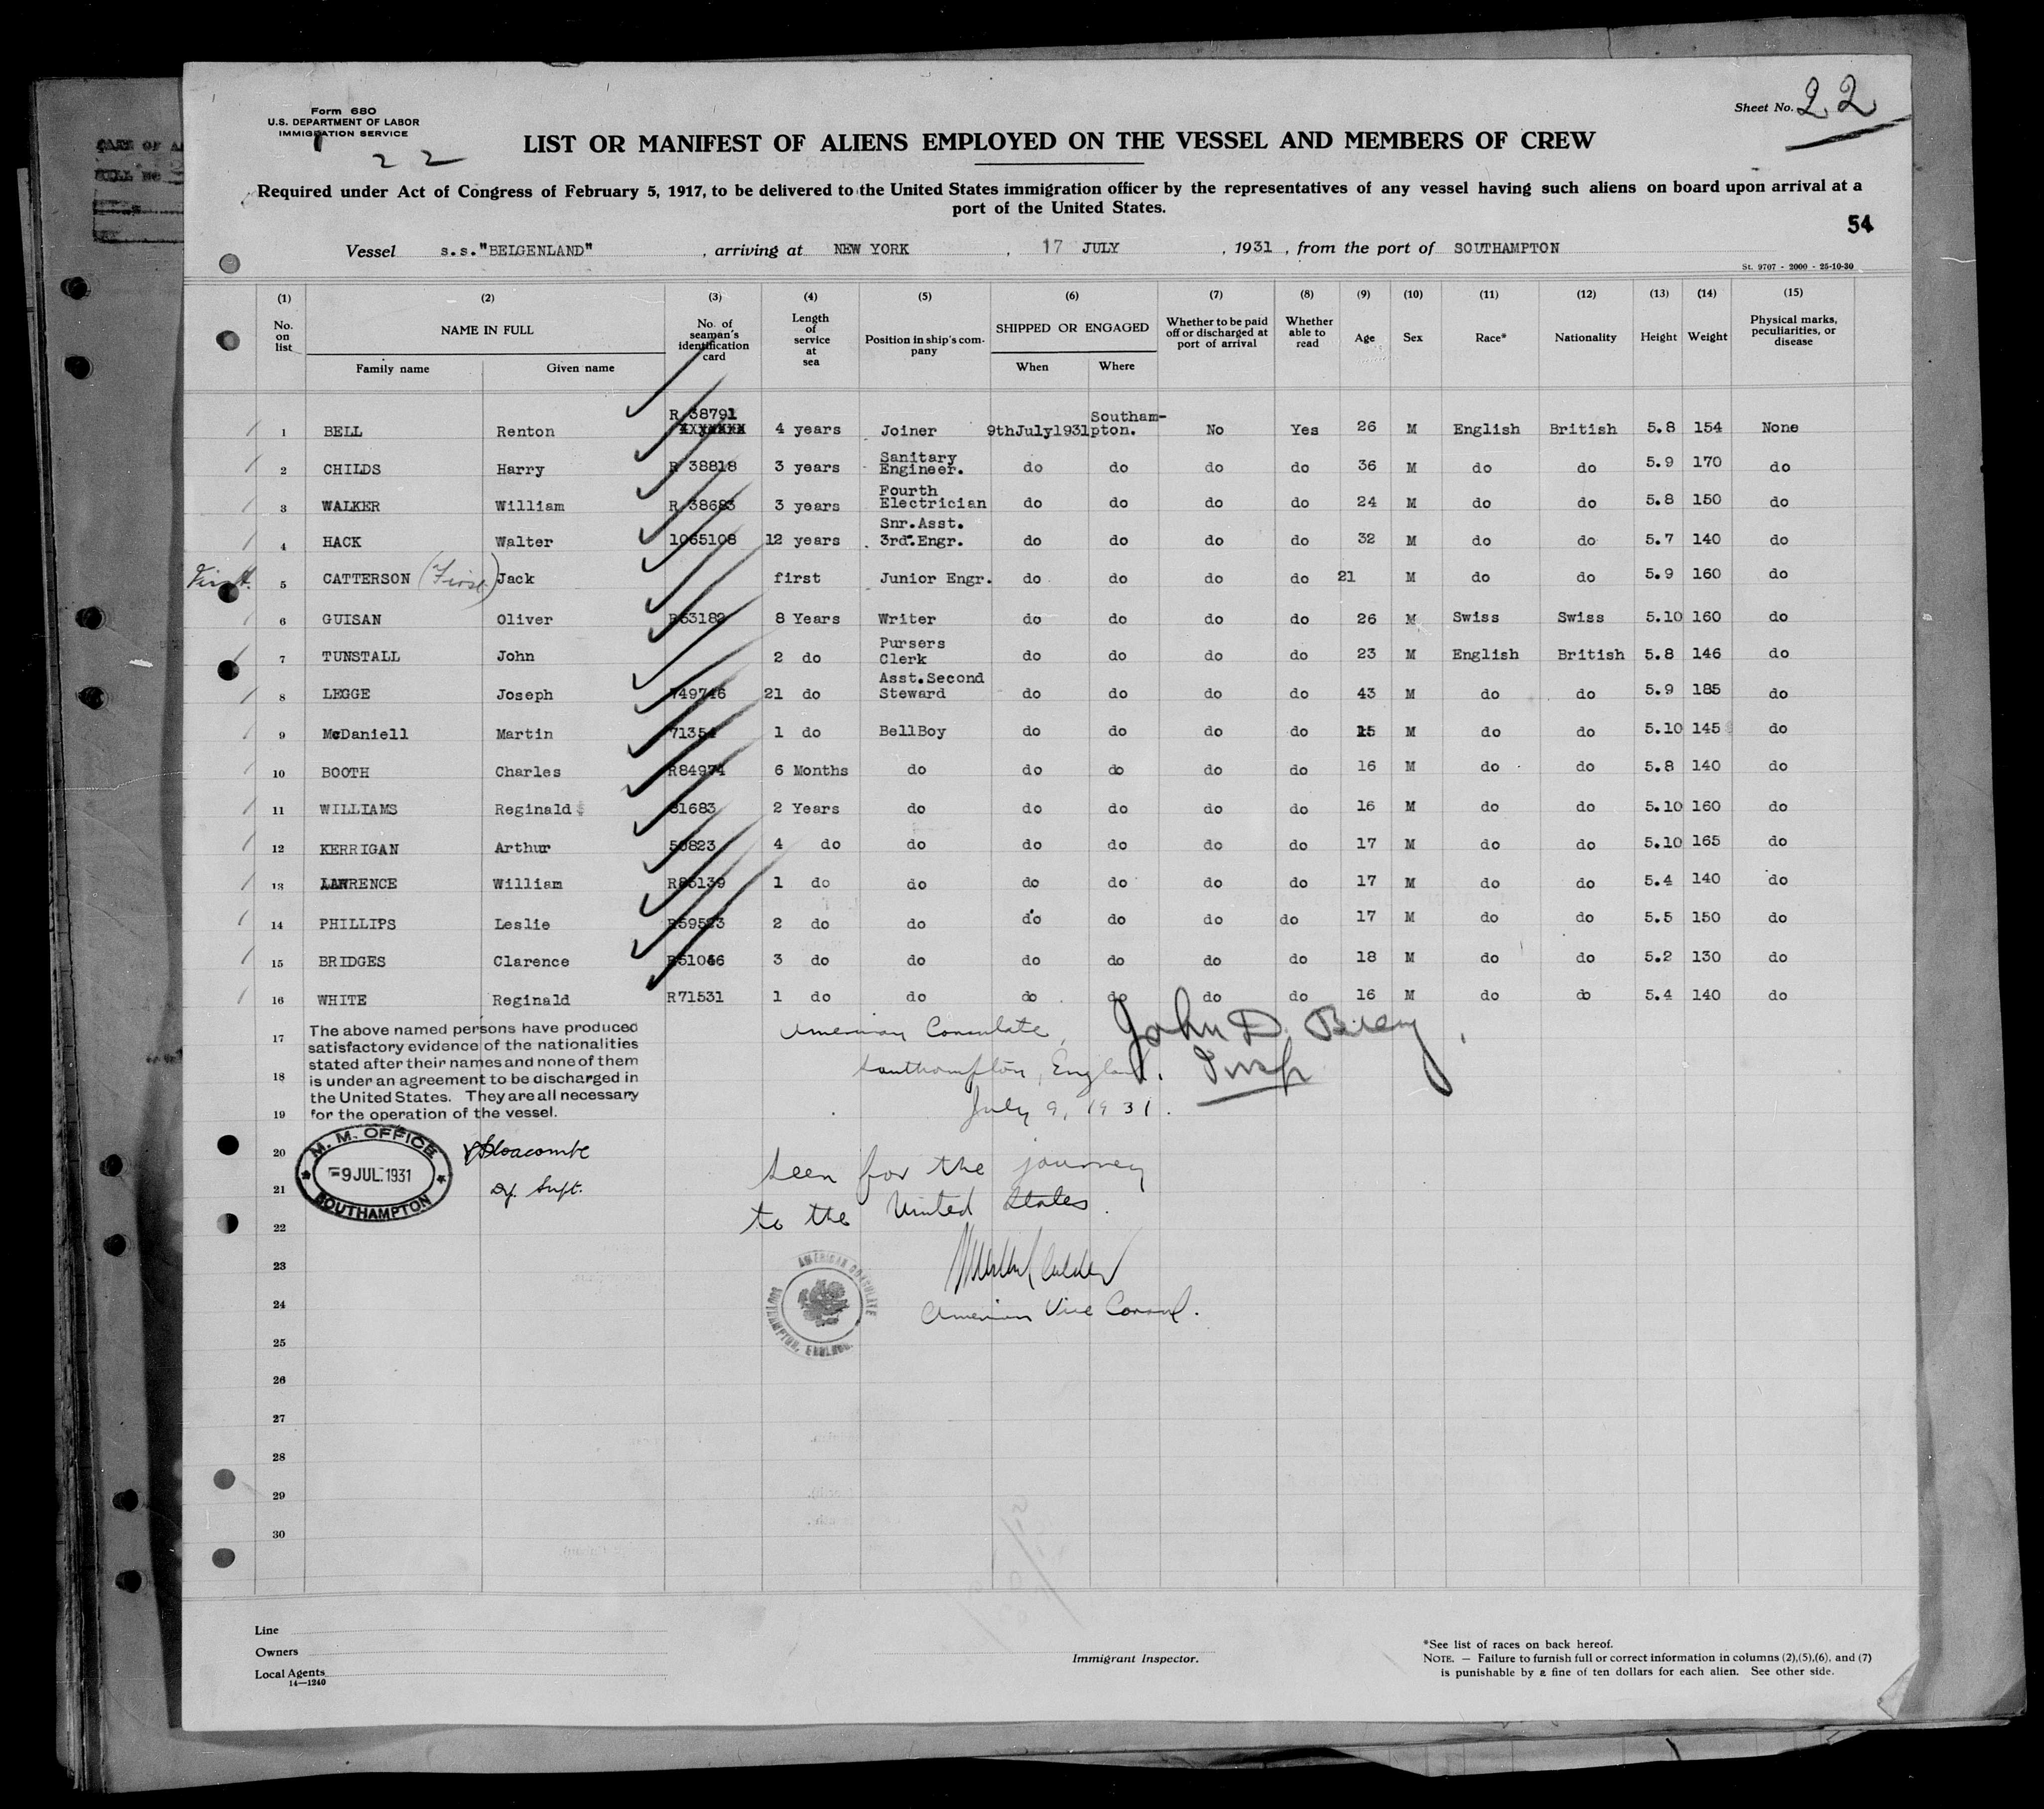 Form 680
U.S. DEPARTMENT OF LABOR
IMMIGRATION SERVICE
22
Sheet No. 22
LIST OR MANIFEST OF ALIENS EMPLOYED ON THE VESSEL AND MEMBERS OF CREW
Required under Act of Congress of February 5, 1917, to be delivered to the United States immigration officer by the representatives of any vessel having such aliens on board upon arrival at a
port of the United States.
54
Vessel s.s."BELGENLAND" , arriving at NEW YORK , 17 JULY , 1931 , from the port of SOUTHAMPTON
St. 9707 - 2000 - 25-10-30
(1) (2) (3) (4) (5) (6) (7) (8) (9) (10) (11) (12) (13) (14) (15)
No. on list NAME IN FULL No. of seaman's identification card Length of service at sea Position in ship's company SHIPPED OR ENGAGED Whether to be paid off or discharged at port of arrival Whether able to read Age Sex Race* Nationality Height Weight Physical marks, peculiarities, or disease
Family name Given name When Where
1 BELL Renton R 38791 4 years Joiner 9thJuly1931 Southampton. No Yes 26 M English British 5.8 154 None
2 CHILDS Harry R 38818 3 years Sanitary Engineer. do do do do 36 M do do 5.9 170 do
3 WALKER William R 38683 3 years Fourth Electrician do do do do 24 M do do 5.8 150 do
4 HACK Walter 1065108 12 years Snr.Asst. 3rd.Engr. do do do do 32 M do do 5.7 140 do
First. 5 CATTERSON (First) Jack first Junior Engr. do do do do 21 M do do 5.9 160 do
6 GUISAN Oliver R63182 8 Years Writer do do do do 26 M Swiss Swiss 5.10 160 do
7 TUNSTALL John 2 do Pursers Clerk do do do do 23 M English British 5.8 146 do
8 LEGGE Joseph 749746 21 do Asst.Second Steward do do do do 43 M do do 5.9 185 do
9 McDaniell Martin 71354 1 do BellBoy do do do do 15 M do do 5.10 145 do
10 BOOTH Charles R84974 6 Months do do do do do 16 M do do 5.8 140 do
11 WILLIAMS Reginald 81683 2 Years do do do do do 16 M do do 5.10 160 do
12 KERRIGAN Arthur 50823 4 do do do do do do 17 M do do 5.10 165 do
13 LAWRENCE William R85139 1 do do do do do do 17 M do do 5.4 140 do
14 PHILLIPS Leslie R59523 2 do do do do do do 17 M do do 5.5 150 do
15 BRIDGES Clarence R51046 3 do do do do do do 18 M do do 5.2 130 do
16 WHITE Reginald R71531 1 do do do do do do 16 M do do 5.4 140 do
17
18
19
20
21
22
23
24
25
26
27
28
29
30
The above named persons have produced
satisfactory evidence of the nationalities
stated after their names and none of them
is under an agreement to be discharged in
the United States. They are all necessary
for the operation of the vessel.
M. M. OFFICE
9 JUL 1931
SOUTHAMPTON
Dy. Supt.
American Consulate,
Southampton, England.
July 9, 1931.
John D.
Insp
Seen for the journey
to the United States.
American Vice Consul.
AMERICAN CONSULATE
SOUTHAMPTON, ENGLAND.
Line
Owners
Local Agents
14—1240
Immigrant Inspector.
*See list of races on back hereof.
NOTE. — Failure to furnish full or correct information in columns (2),(5),(6), and (7)
is punishable by a fine of ten dollars for each alien. See other side.